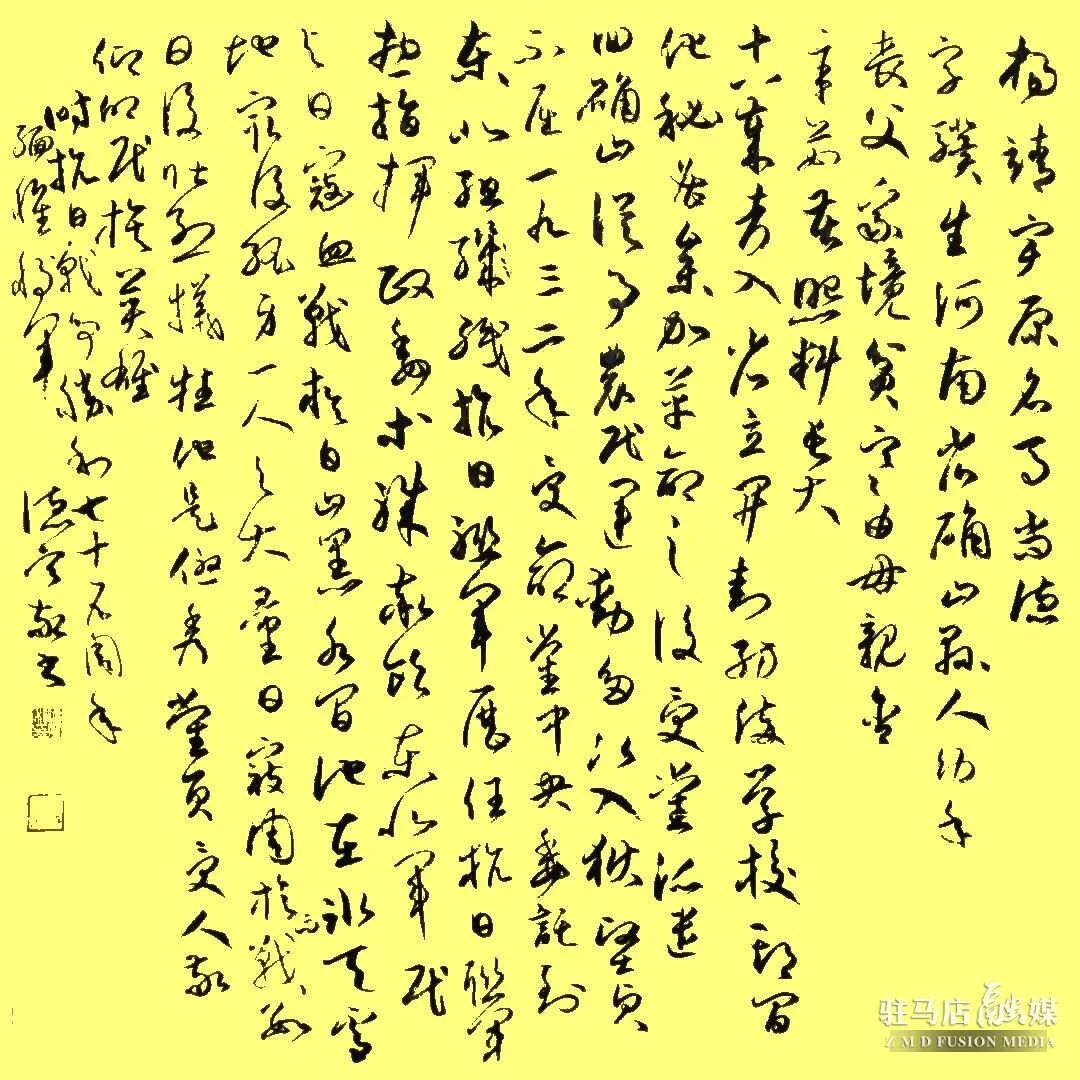 杨靖宇原名马尚德
字骥生河南省确山县人幼年
丧父家境贫寒由母亲含
辛茹苦照料长大
十八岁考入省立开封纺染学校期间
他秘密参加革命之后受党派遣
回确山從事農民運動多次入狱坚贞
不屈一九三二年受命党中央委託到
东北组织抗日联军历任抗日联军
总指挥政委率领东北军民
与日寇血战于白山黑水间他在冰天雪
地最后孤身一人与大量日寇周旋战
日後壮烈犧牲他是优秀党员受人敬
仰的民族英雄
时抗日战争胜利七十五周年
缅怀将军 敬书
驻马店融媒
Z M D FUSION MEDIA